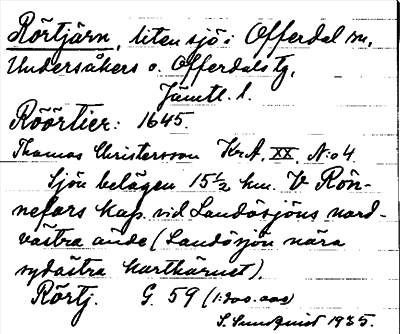 Rörtjärn, liten sjö i Offerdal sn,
Undersåkers o. Offerdals tg,
Jämtl. l.
Röörtier: 1645.
Thomas Christersson Kr.A. XX. N:o 4.
Sjön belägen 15 1/2 km. V Rön-
nefors kap. vid Landösjöns nord-
västra ände (Landösjön nära
sydöstra kartkärnet).
Rörtj. G. 59 (1:200.000)
S. Sundquist 1935.